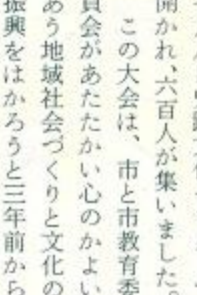 開かれ、六百人が集いました。
この大会は、市と市教育委
員会があたたかい心のかよい
あう地域社会づくりと文化の
振興をはかろうと三年前から